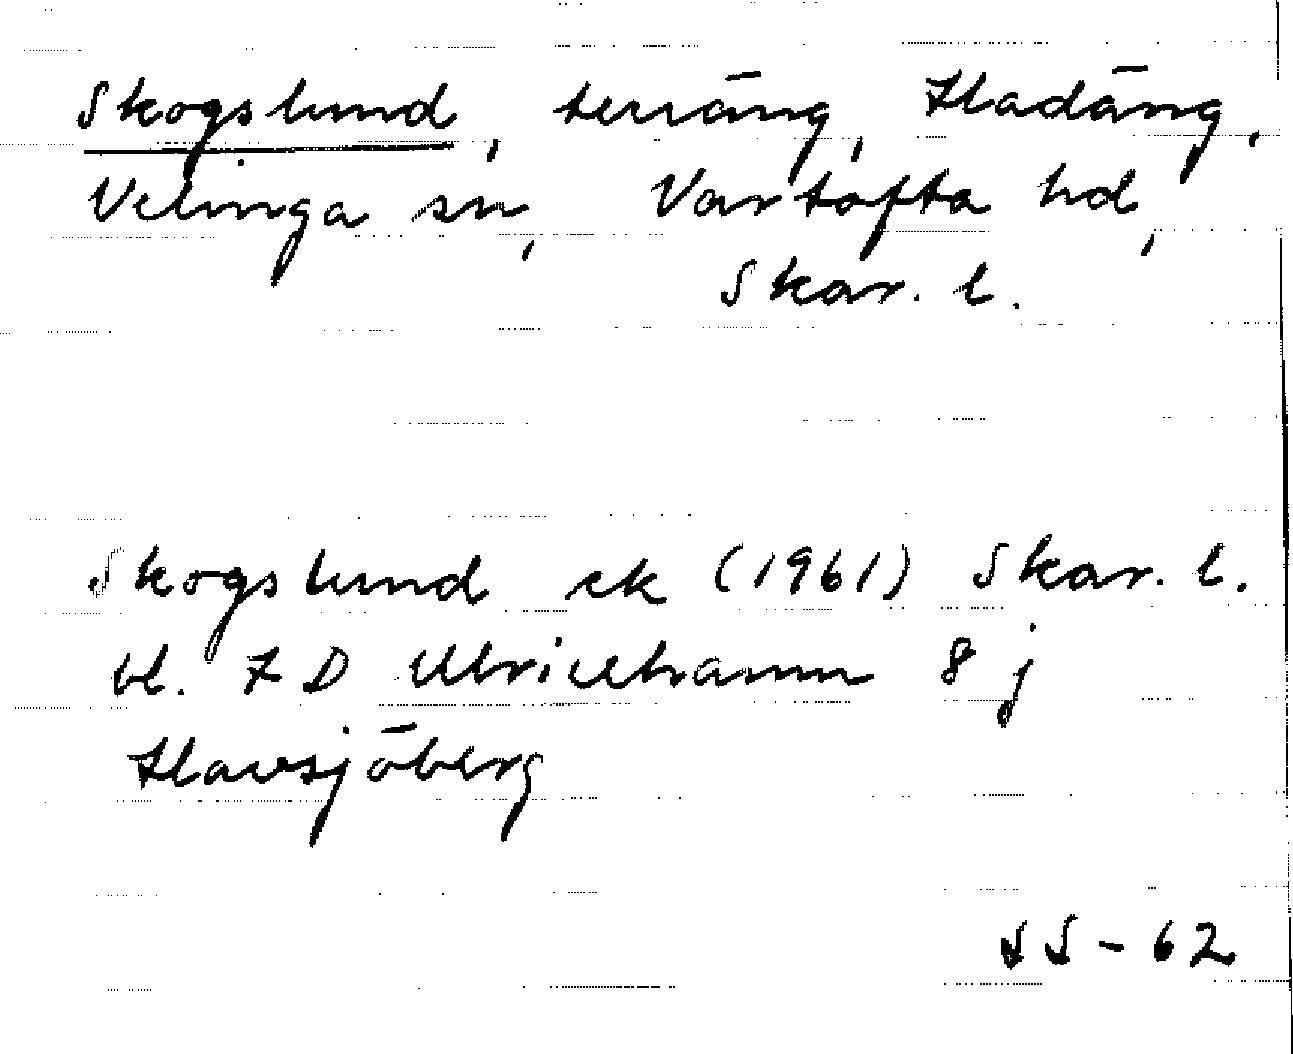 Skogslund, terräng, Hadäng,
Velinga sn, Vartofta hd,
Skar. l.
Skogslund ek (1961) Skar. l.
bl. 7 D Ulricehamn 8 j
Havsjöberg
SS - 62